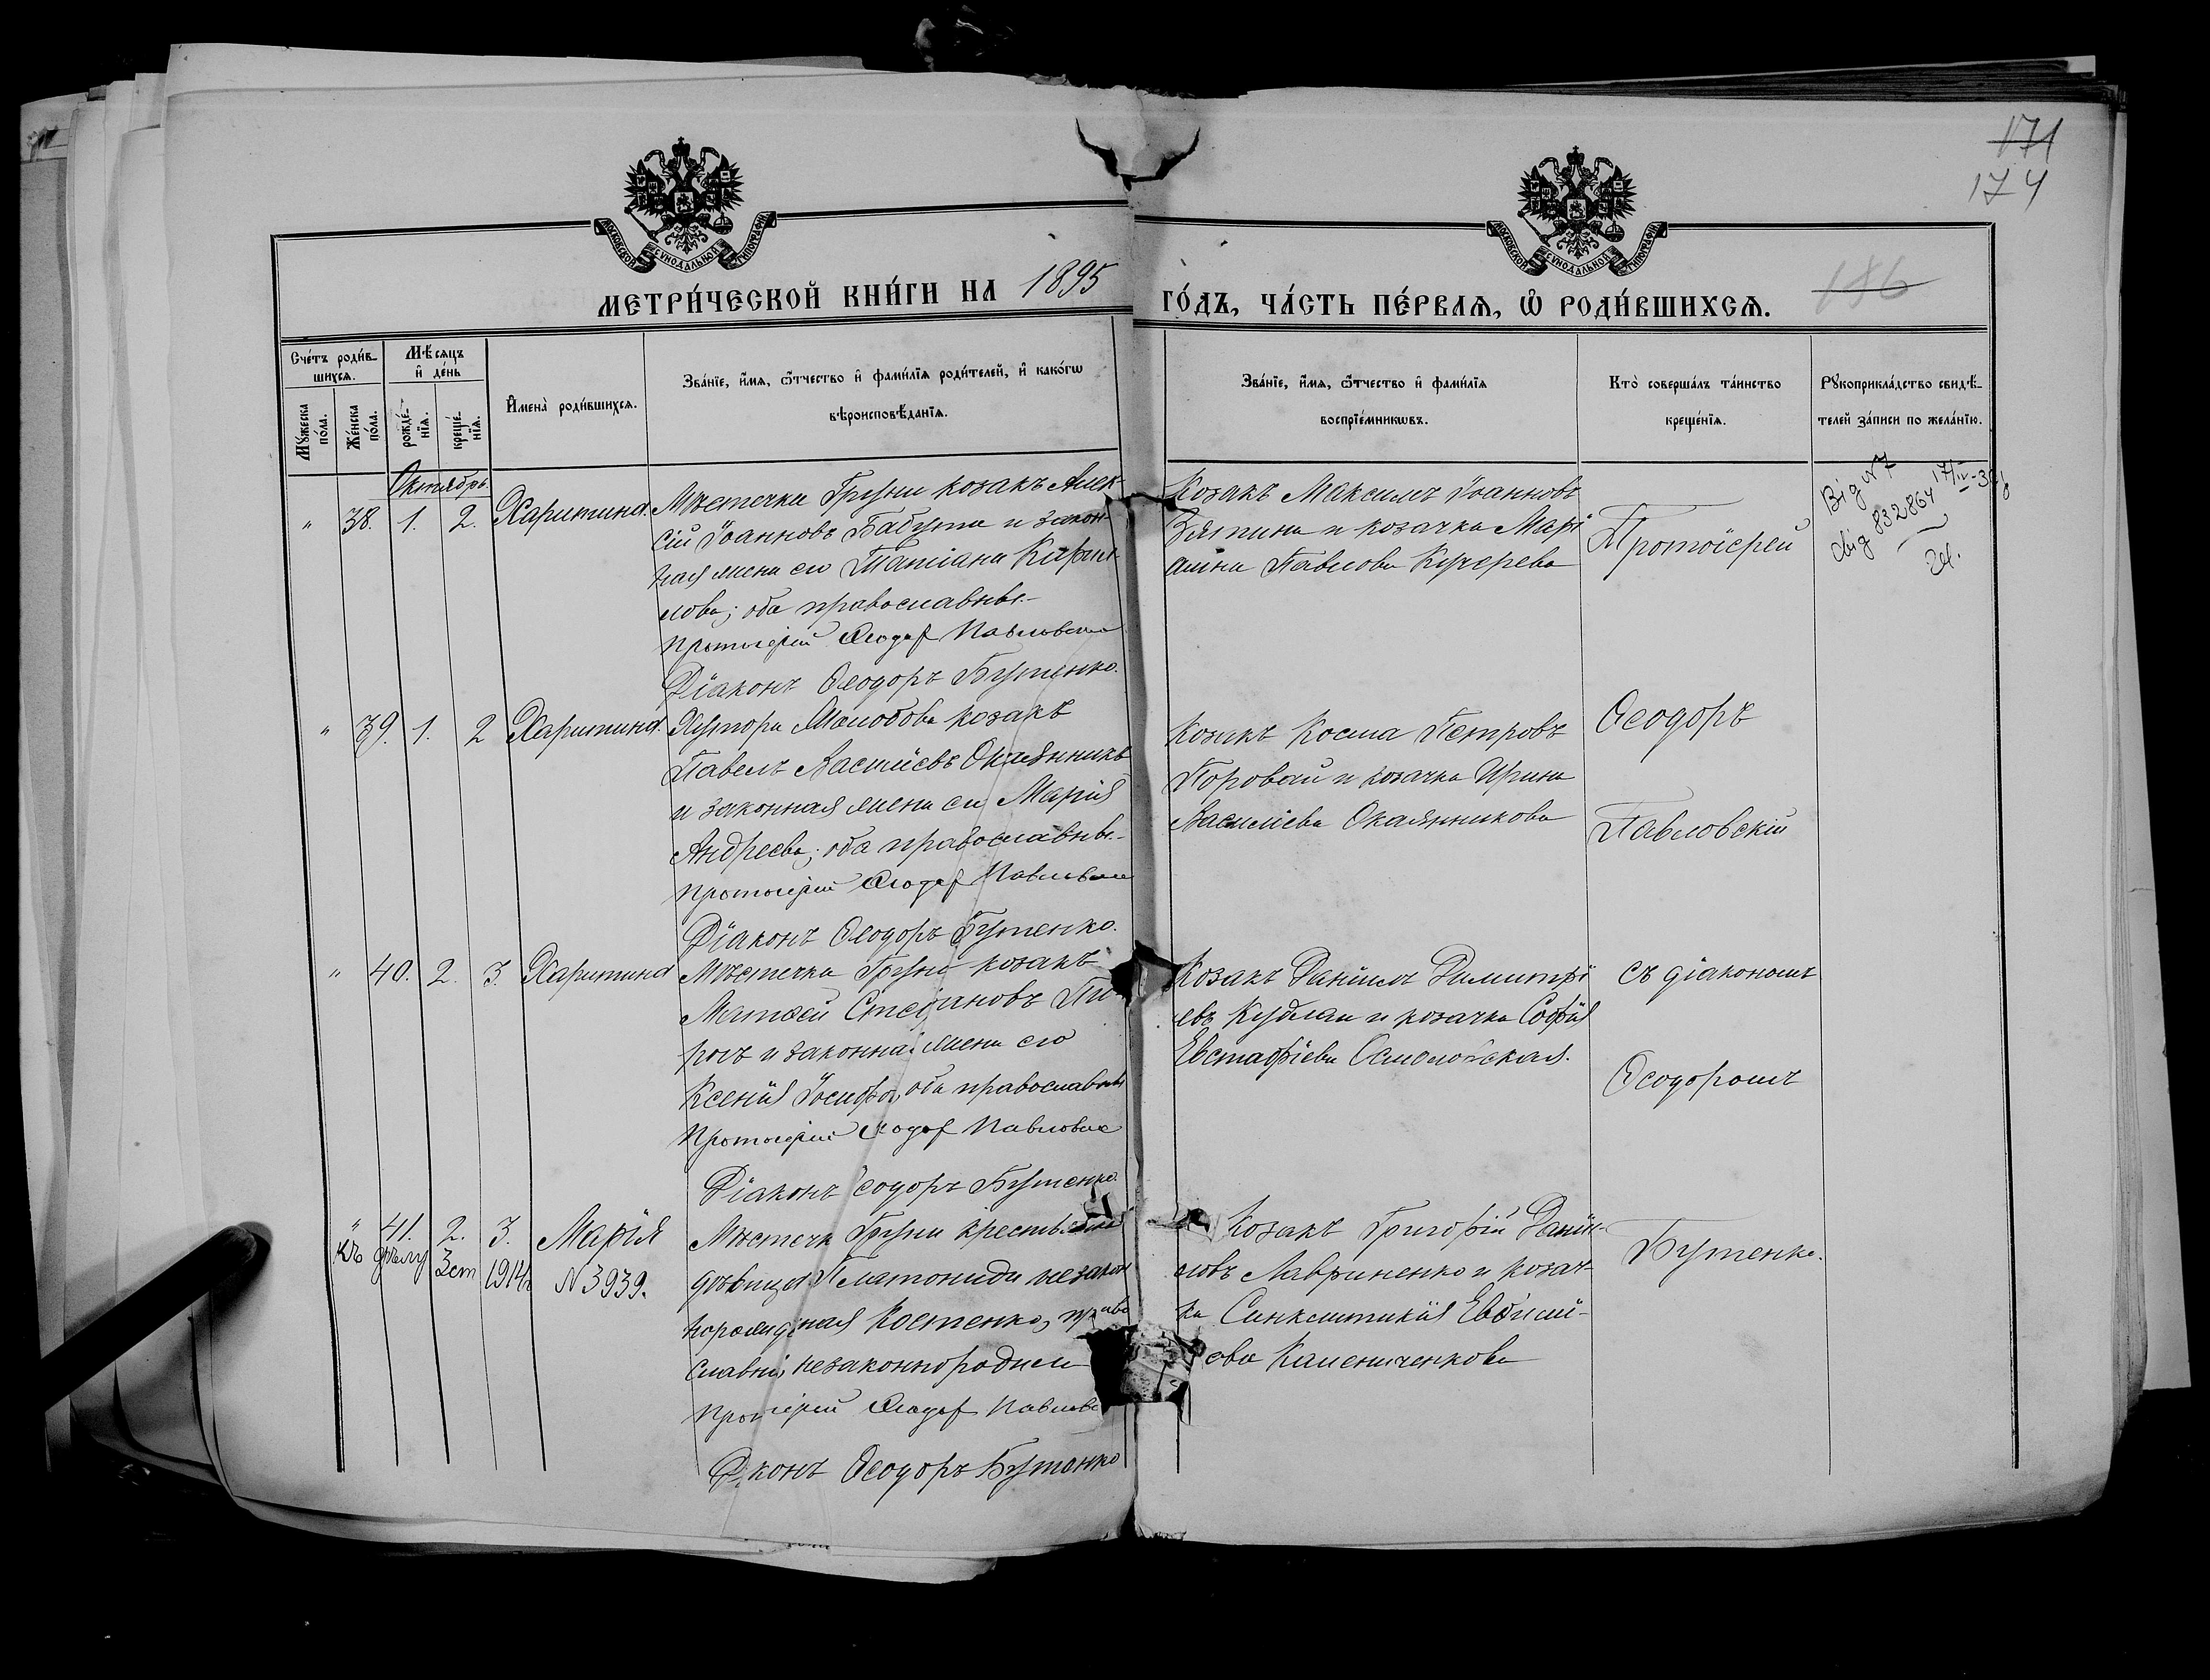 171
174
186
МОСКОВСКОЙ СѴНОДАЛЬНОЙ ТИПОГРАФІИ
МОСКОВСКОЙ СѴНОДАЛЬНОЙ ТИПОГРАФІИ
МЕТРИ́ЧЕСКОЙ КНИ́ГИ НА 1895 ГО́ДЪ, ЧА́СТЬ ПЕ́РВАЯ, Ѡ РОДИ́ВШИХСЯ.
Сче́тъ роди́в-
шихся.
Мѣ́сяцъ
и҆ де́нь
Мꙋ́жеска
по́ла.
Же́нска
по́ла.
рожде́-
нїя.
креще́-
нїя.
И҆мена̀ роди́вшихся.
Зва́нїе, и҆́мя, ѻ҆́тчество и҆ фамѝлїя роди́телей, и҆ како́гѡ
вѣроисповѣ́данїя.
Зва́нїе, и҆́мя, ѻ҆́тчество и҆ фамѝлїя
воспрїе́мникѡвъ.
Кто̀ соверша́лъ та́инство
креще́нїя.
Рꙋкоприкла́дство свидѣ́-
телей за́писи по жела́нїю.
Октябрь.
" 38. 1. 2. Харитина.
Мѣстечка Груни козакъ Алек-
сій Іоанновъ Бабута и закон-
ная жена его Татіана Кирил-
лова; оба православные.
Протоіерей Ѳеодоръ Павловскій
Діаконъ Ѳеодоръ Бутенко.
Козакъ Максимъ Іоанновъ
и козачка Марі
амна Павлова Кучерева
Протоіерей
Від №7
свід 832864
" 39. 1. 2 Харитина.
Хутора козакъ
Павелъ Василіевъ Окаянникъ
и законная жена его Марія
Андреева; оба православные.
Протоіерей Ѳеодоръ Павловскій
Діаконъ Ѳеодоръ Бутенко.
Козакъ Косма Петровъ
Поровай и козачка Ирина
Василіева Окаянникова
Ѳеодоръ
Павловскій
" 40. 2. 3. Харитина
Мѣстечка Груни козакъ
Матѳей Стефановъ Пи-
рогъ и законная жена его
Ксенія Іосифова, оба православные
Протоіерей Ѳеодоръ Павловскій
Діаконъ Ѳеодоръ Бутенко.
Козакъ Даніилъ Димитрі
евъ Кудлай и козачка Софія
Евстафіева Осмоловская.
съ діакономъ
Ѳеодоромъ
" 41. 2. 3. Марія
Къ дѣлу 3 ст 1914 г. N 3939.
Мѣстечка Груни крестьянка
дѣвица Платонида незакон
норожденная Костенко, право
славная, незаконнородная
Протоіерей Ѳеодоръ Павловскій
Діаконъ Ѳеодоръ Бутенко
Козакъ Григорій Даніи-
ловъ Лавриненко и козач-
ка Синклитикія Евѳимі-
ева Камениченкова
Бутенко.